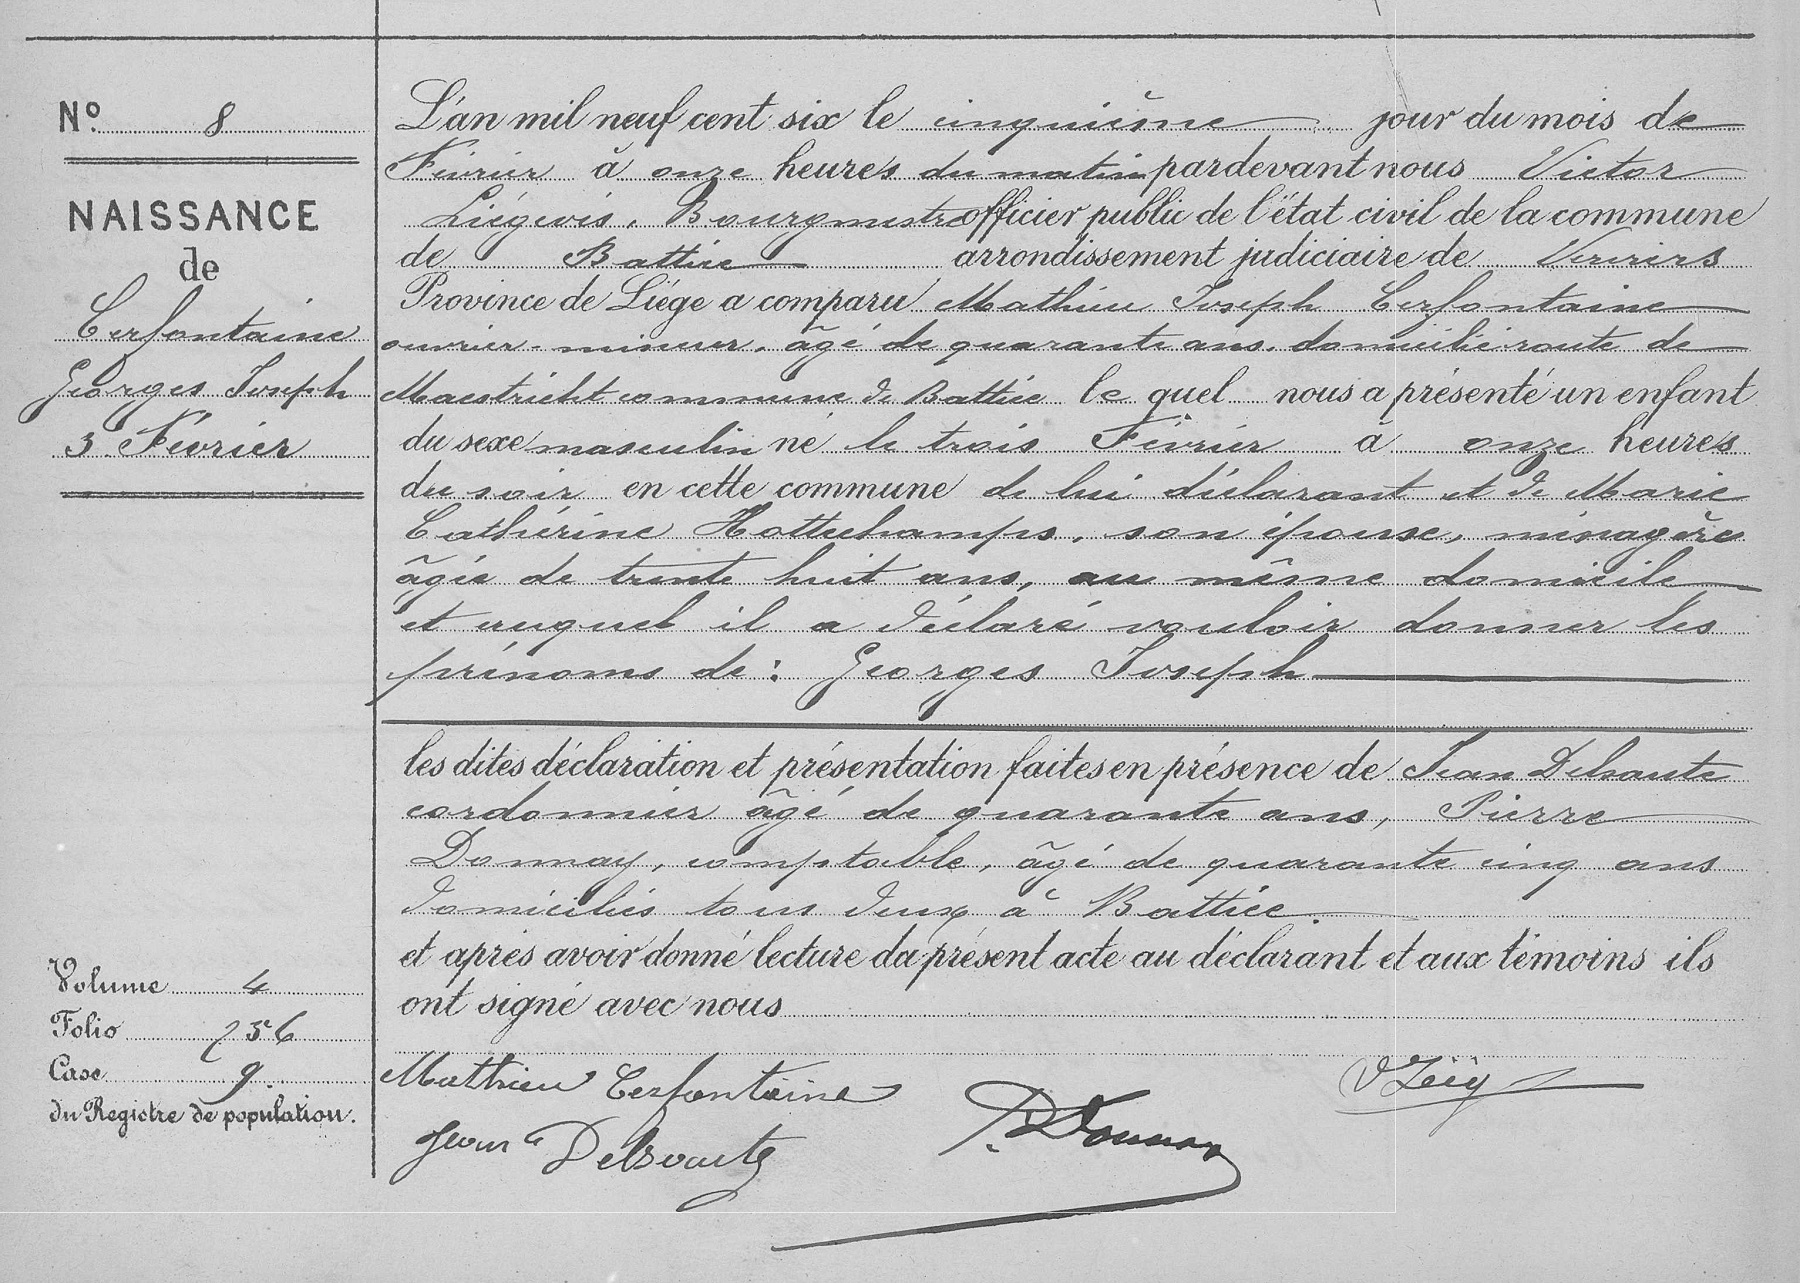 N° 8
NAISSANCE
de
Cerfontaine
Georges Joseph
3 Février
L'an mil neuf cent six le cinquième jour du mois de
Février à onze heures du matin pardevant nous Victor
Liégeois, Bourgmestre officier public de l'état civil de la commune
de Battice arrondissement judiciaire de Verviers
Province de Liége a comparu Mathieu Joseph Cerfontaine
ouvrier-mineur, âgé de quarante ans, domicilié route de
Maestricht commune de Battice le quel nous a présenté un enfant
du sexe masculin né le trois Février à onze heures
du soir en cette commune de lui déclarant et de Marie
Cathérine Hottechamps, son épouse, ménagère
âgée de trente huit ans, au même domicile
et auquel il a déclaré vouloir donner les
prénoms de : Georges Joseph
les dites déclaration et présentation faites en présence de Jean Delsaute
cordonnier âgé de quarante ans, Pierre
Donnay, comptable, âgé de quarante cinq ans
domiciliés tous deux à Battice.
et après avoir donné lecture du présent acte au déclarant et aux témoins ils
ont signé avec nous
Volume 4
Folio 256
Case 9.
du Registre de population.
Mathieu Cerfontaine
Jean Delsaute
P. Donnay